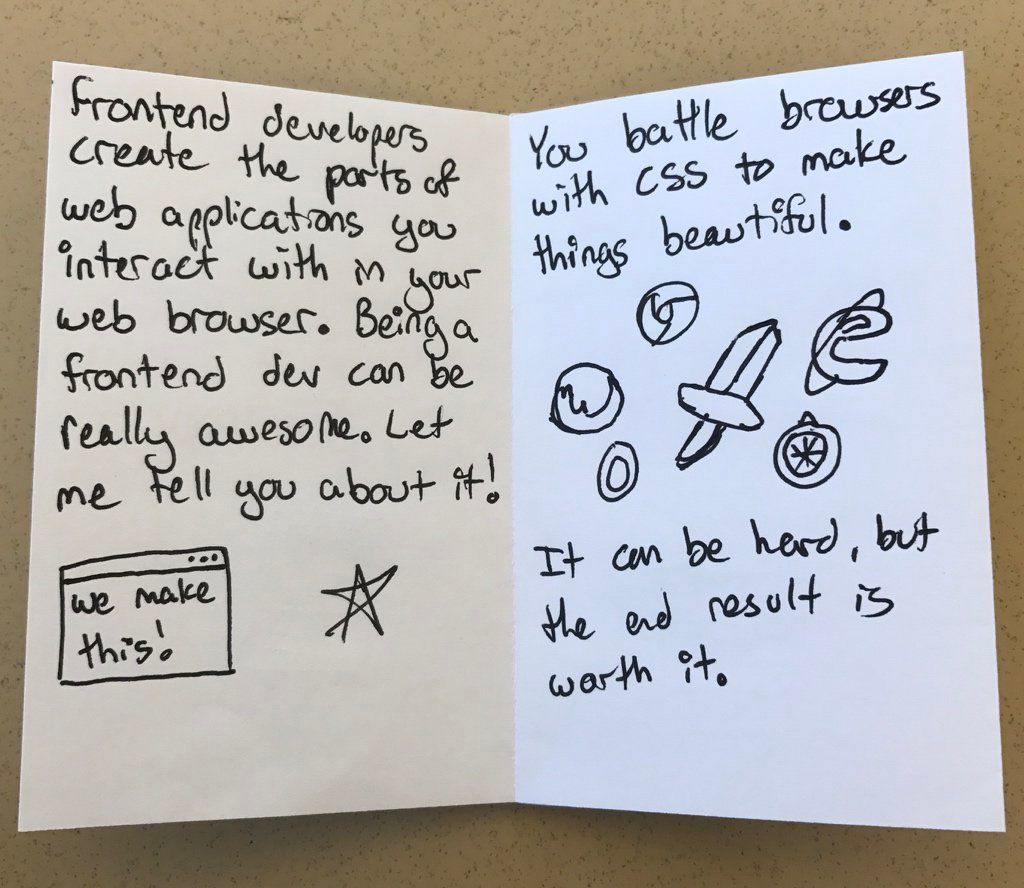 Frontend developers
create the parts of
web applications you
interact with in your
web browser. Being a
frontend dev can be
really awesome. Let
me tell you about it!
we make
this!
You battle browsers
with CSS to make
things beautiful.
It can be hard, but
the end result is
worth it.